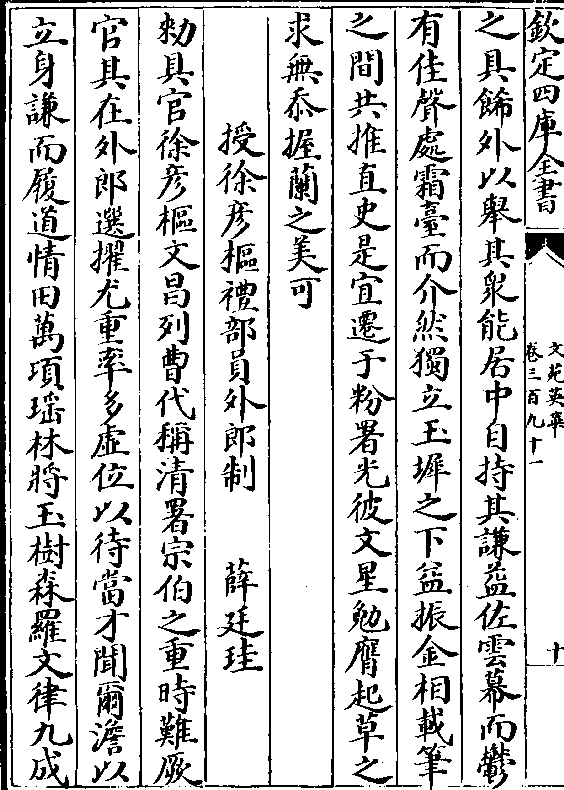 欽定四庫全書
文苑英華
卷三百九十一
十
之具餙外以舉其衆能居中自持其謙益佐雲幕而鬱
有佳聲處霜臺而介然獨立玉墀之下益振金相載筆
之間共推直史是宜遷于粉署光彼文星勉膺起草之
求無忝握蘭之美可
授徐彦樞禮部員外郎制 薛廷珪
勑具官徐彦樞文昌列曹代稱清署宗伯之重時難厥
官其在外郎選擢尤重率多虚位以待當才聞爾澹以
立身謙而履道情田萬項瑶林將玉樹森羅文律九成